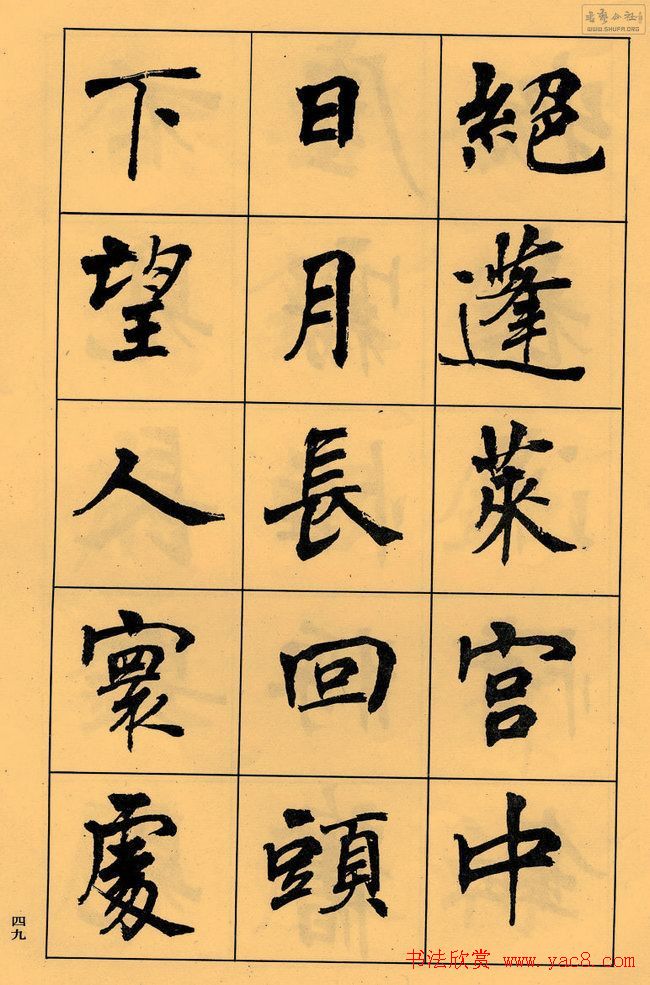 絕蓬萊宮中
日月長回頭
下望人寰處
四九
书艺公社
WWW.SHUFA.ORG
书法欣赏 www.yac8.com